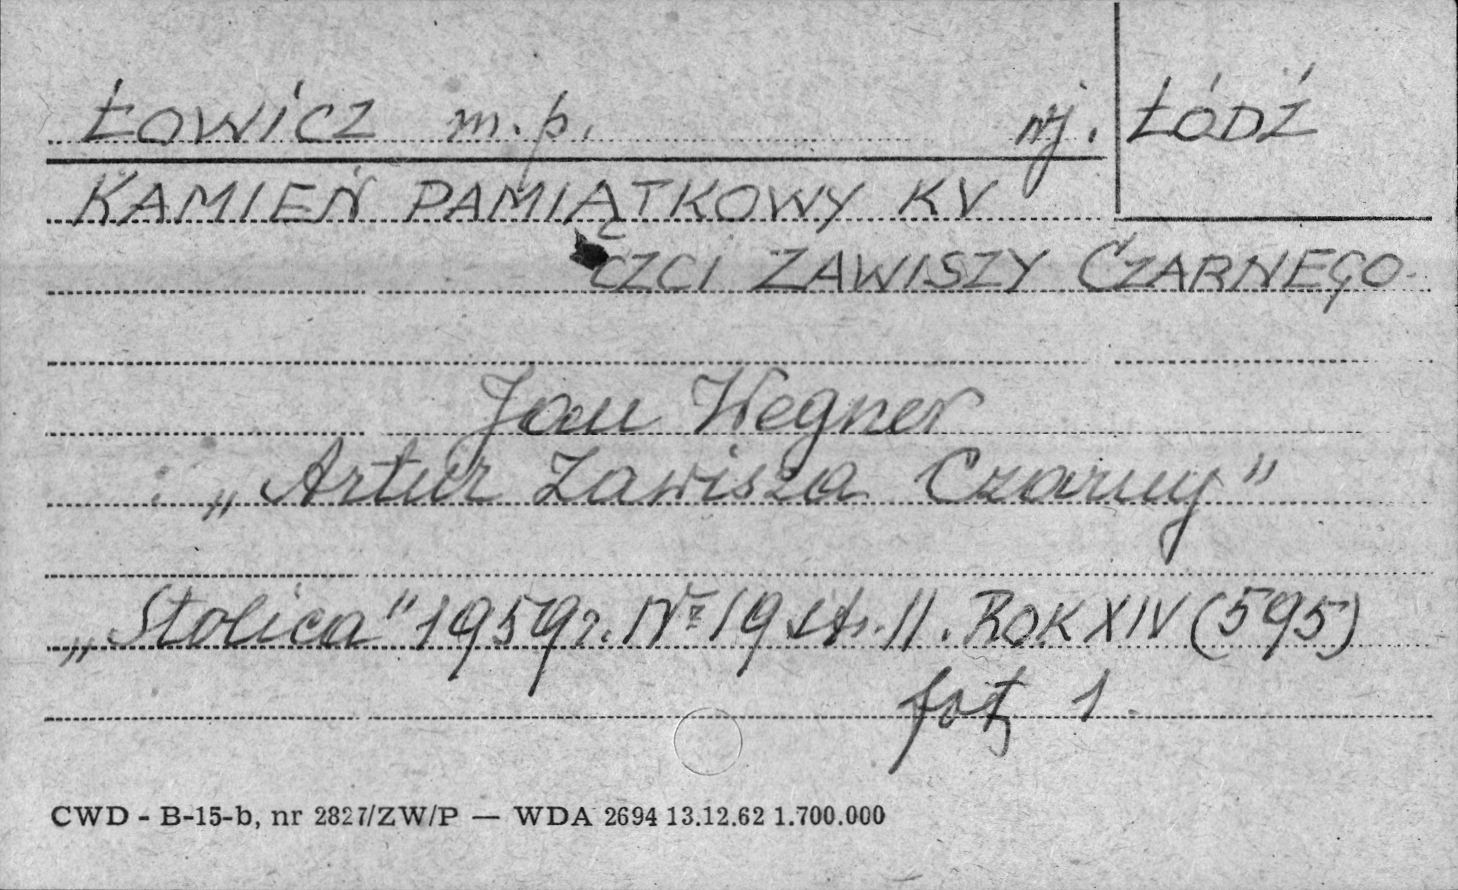 ŁOWICZ m.p. wj. ŁÓDŹ
KAMIEŃ PAMIĄTKOWY KV
CZCI ZAWISZY CZARNEGO
Jan Wegner
„Artur Zawisza Czarny"
„Stolica" 1959r. Nr 19 str. 11. ROK XIV (595)
fot. 1.
CWD - B-15-b, nr 2827/ZW/P — WDA 2694 13.12.62 1.700.000